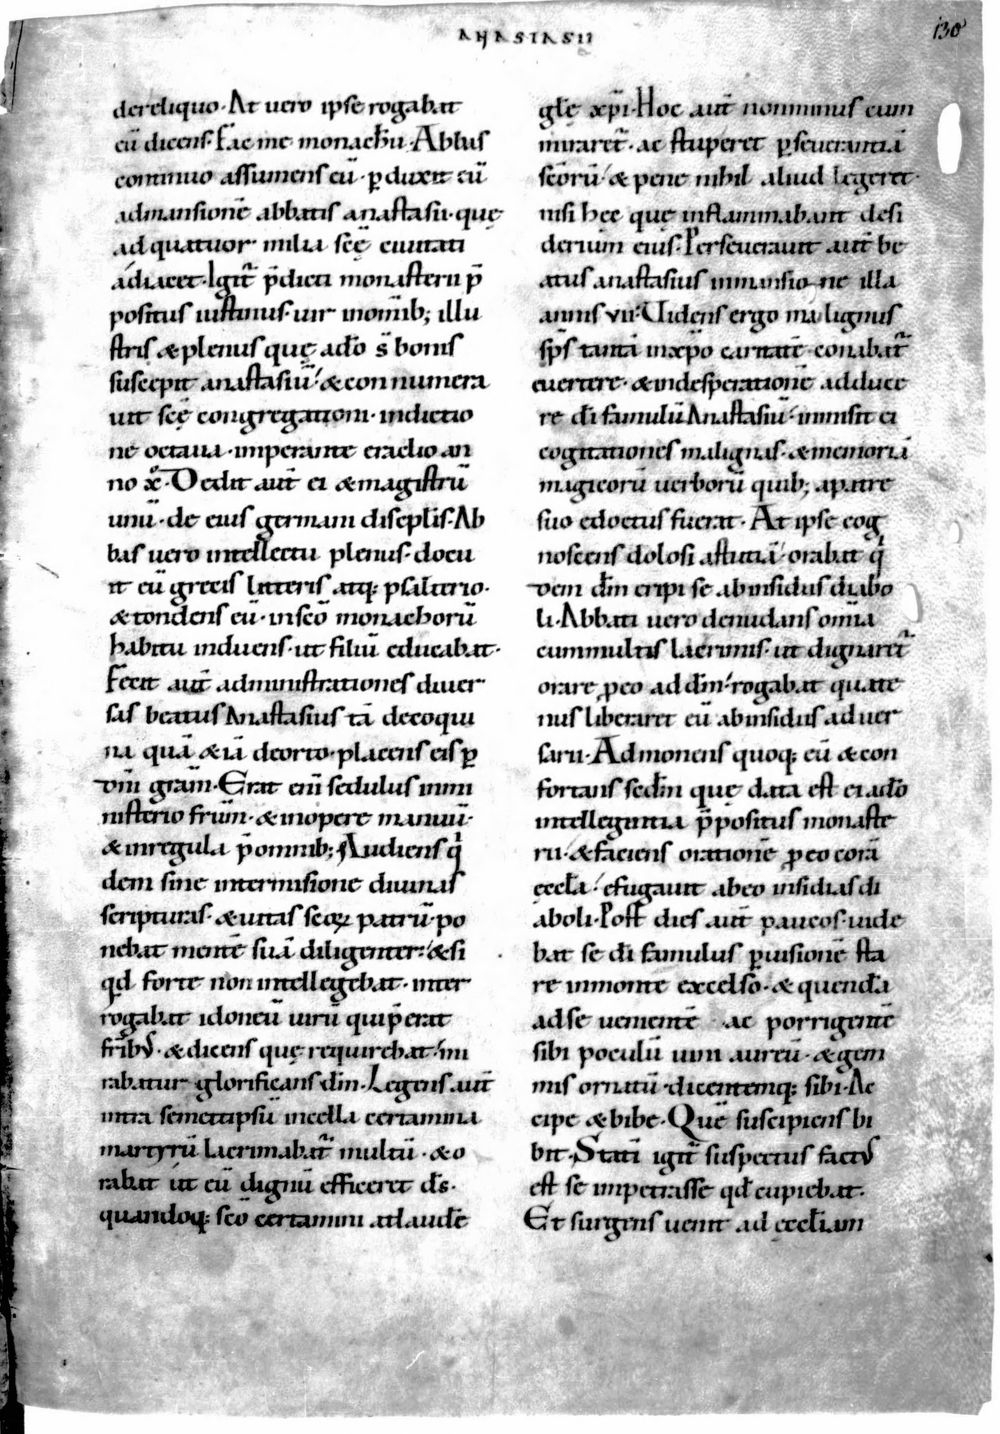 ANASTASII
130
dereliquo· At uero ipse rogabat
eū dicens· Fac me monachū· Abbas
continuo assumens eū· ꝑduxit eū
admansionē abbatis anastasii· quę
ad quatuor milia scę̄ ciuitati
adiacet· Igit᷑ p̄dicti monasterii p̄
positus iustinus· uir inomīb; illu
stris & plenus quę ado s̄ bonis
suscepit anastasiū· & connumera
uit scę̄ congregationi· indictio
ne octaua· imperante eraclio an
no x̊· Dedit aut̄ ei & magistrū
unū· de eius germani discipl̄is· Ab
bas uero intellectu plenus· docu
it eū grecis litteris atq; psalterio·
& tondens eū· inscō monachorū
habitu induens· ut filiū educabat·
Fecit aut̄ administrationes diuer
sas beatus Anastasius tā decoqui
na quā & iā deorto· placens eis ꝑ
dn̄i gram̄· Erat enī sedulus inmi
nisterio frūm· & inopere manuū·
& inregula p̄omnib; Audiens q̇
dem sine intermisione diuinas
scripturas· & uitas scoꝝ patrū· po
nebat mentē suā diligenter· & si
qd̄ forte non intellegebat· inter
rogabat idoneū uirū quip̄erat
frīb;· & dicens quę requirebat· mi
rabatur glorificans dn̄m· Legens aut̄
intra semetipsū incella certamina
martyrū lacrimabat᷑ multū· & o
rabat ut eū dignū efficeret ds̄·
quandoq; scō certamini adlaudē
glę̄ xp̄i· Hoc aut̄ nonminus cum
miraret᷑· ac stuperet ꝑseuerantiā
scōrū· & pene nihil aliud legeret·
nisi hęc quę inflammabant desi
derium eius· Perseuerauit aut̄ be
atus anastasius inmansione illa
annis vii· Uidens ergo malignus
sp̄s tantā inxp̄o caritatē· conabat᷑
euertere· & indesperationē adduce
re dī famulū Anastasiū· inmisit ei
cogitationes malignas· & memoriā
magicorū uerborū quib; apatre
suo edoctus fuerat· At ipse cog
noscens dolosi astutiā· orabat q̇
dem dn̄m eripi se abinsidiis diabo
li· Abbati uero denudans omīa
cummultis lacrimis· ut dignaret᷑
orare ꝓeo ad dn̄m· rogabat quate
nus liberaret eū abinsidiis aduer
sarii· Admonens quoq; eū & con
fortans scdm̄ quę data est ei ado
intellegentia p̄positus monaste
rii· & faciens orationē ꝓeo corā
eccla̅· effugauit abeo insidias di
aboli· Post dies aut̄ paucos· uide
bat se dī famulus ꝑuisionē sta
re inmonte excelso· & quendā
adse uenientē ac porrigentē
sibi poculū uini aureū· & gem
mis ornatū· dicentemq; sibi· Ac
cipe & bibe· Quē suscipiens bi
bit· Statī igit᷑ suspectus factus
est se impetrasse qd̄ cupiebat·
Et surgens uenit ad eccl̄iam